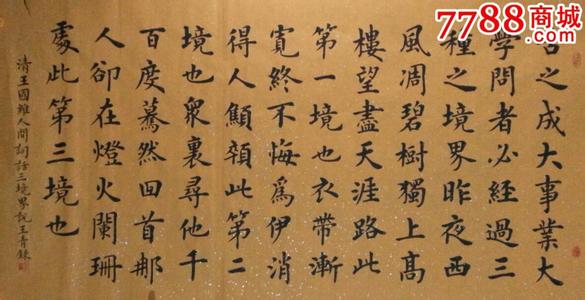 7788商城
之成大事業大
學問者必經過三
種之境界昨夜西
風凋碧樹獨上高
樓望盡天涯路此
第一境也衣帶漸
寬終不悔爲伊消
得人顦顇此第二
境也衆裏尋他千
百度驀然回首那
人卻在燈火闌珊
處此第三境也
清王國維人間詞話三境界説王青